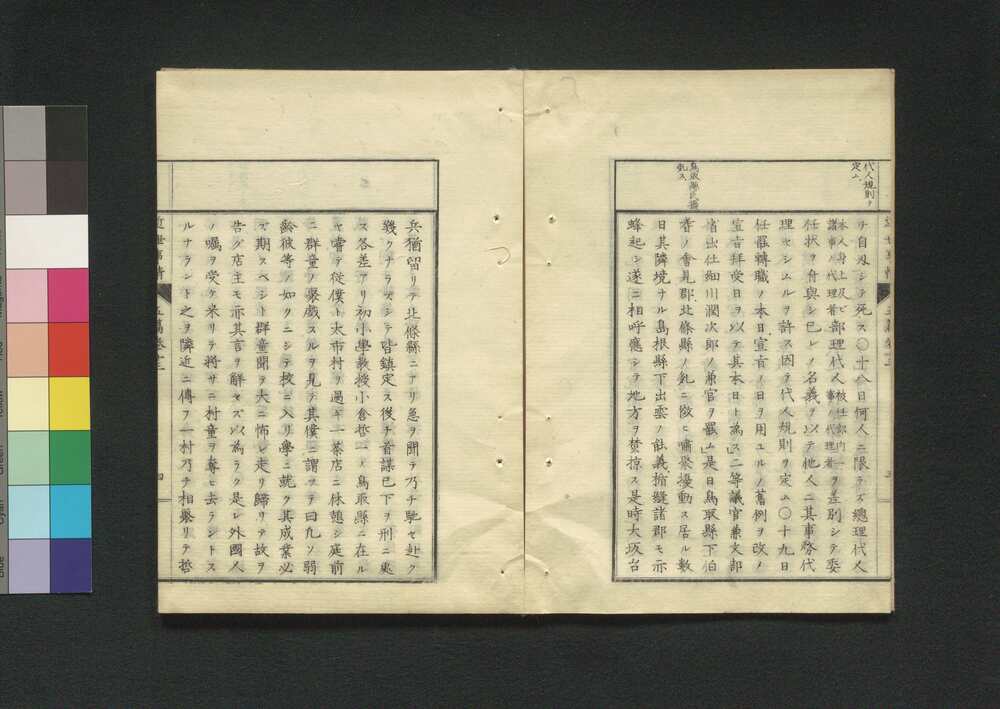 代人規則ヲ
定ム
鳥取縣民擾
乱ス
テ自刃シテ死ス〇十八日何人ニ限ラズ總理代人
本人身上及ビ諸事ノ代理者 部理代人 被任部内ノ一事ノ代理者 ヲ差別シテ委
任狀ヲ付與シ已レノ名義ヲ以テ他人ニ其事務代
理セシムルヲ許ス因テ代人規則ヲ定ム〇十九日
任罷轉職ノ本日宣旨ノ日ヲ用ユルノ舊例ヲ改メ
宣旨拜受日ヲ以テ其本日ト為ス二等議官兼文部
省出仕細川潤次郎ノ兼官ヲ罷ム是日鳥取縣下伯
耆ノ會見郡北條縣ノ乱ニ傚ヒ嘯聚擾動ス居ル數
日其隣境ナル島根縣下出雲ノ飯義楯縫諸郡モ亦
蜂起シ遂ニ相呼應シテ地方ヲ焚掠ス是時大坂台
兵猶留リテ北條縣ニアリ急ヲ聞テ乃チ馳セ赴ク
幾クナラズシテ皆鎮定ス後チ首謀已下ヲ刑ニ處
ス各差アリ初小學教授小倉哲二ト鳥取縣ニ在ル
ヤ嘗テ從僕ト太市村ヲ過ギ一茶店ニ休憩シ庭前
ニ群童ノ聚戯スルヲ見テ其僕ニ謂ツテ曰凡ソ弱
齡彼等ノ如クニシテ校ニ入リ學ニ就ク其成業必
ズ期スベシト群童聞ヲ大ニ怖レ走リ歸リテ故ヲ
告グ店主モ亦其言ヲ解セズ以為ラク是レ外國人
ノ囑ヲ受ケ来リテ將サニ村童ヲ奪ヒ去ラントス
ルナラント之ヲ隣近ニ傳フ一村乃チ相聚リテ哲